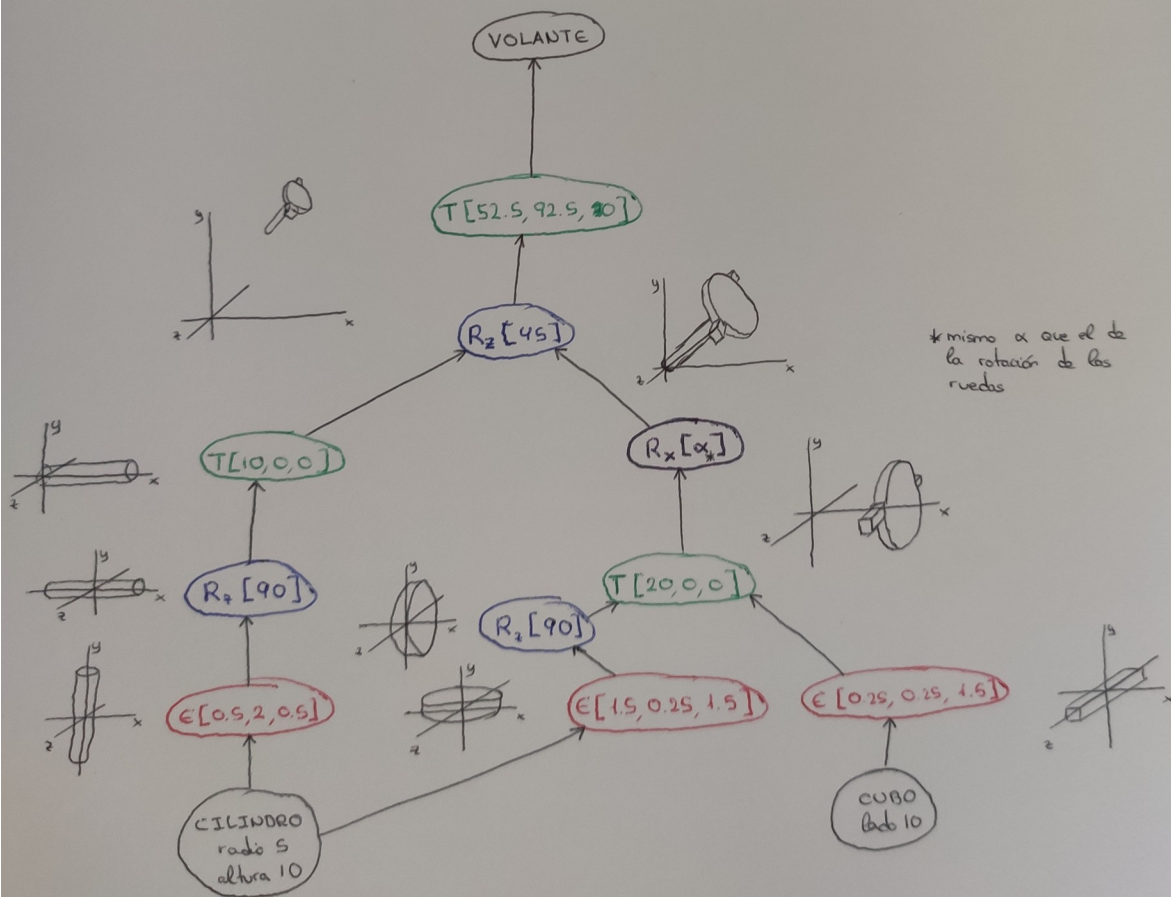 VOLANTE
T[52.5, 92.5, 20]
y
z
x
Rz[45]
y
z
x
*mismo α que el de
la rotación de las
ruedas
T[10,0,0]
y
z
x
Rx[α*]
y
z
x
Rz[90]
y
z
x
T[20,0,0]
Rz[90]
y
z
x
E[0.5,2,0.5]
y
z
x
E[1.5,0.25,1.5]
y
z
x
E[0.25,0.25,1.5]
y
z
x
CILINDRO
radio 5
altura 10
CUBO
lado 10